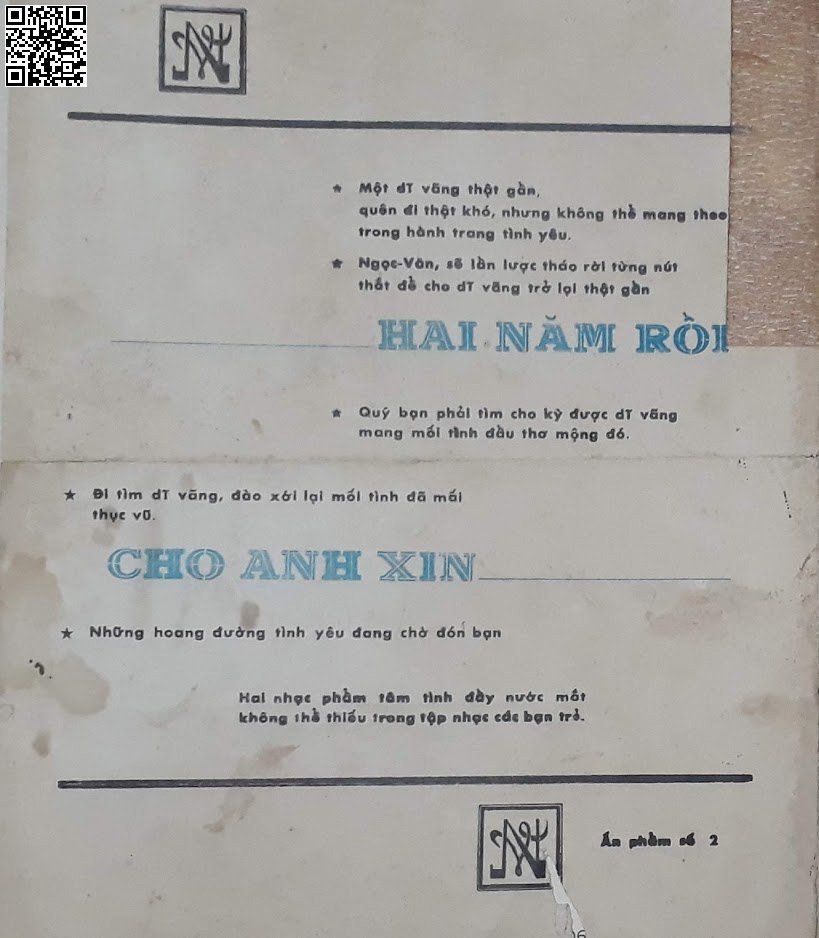 ★ Một dĩ vãng thật gần,
quên đi thật khó, nhưng không thể mang theo
trong hành trang tình yêu.
★ Ngọc-Vân, sẽ lần lược tháo rời từng nút
thắt để cho dĩ vãng trở lại thật gần
HAI NĂM RỒI
★ Quý bạn phải tìm cho kỳ được dĩ vãng
mang mối tình đầu thơ mộng đó.
★ Đi tìm dĩ vãng, đào xới lại mối tình đã mấi
thục vũ.
CHO ANH XIN
★ Những hoang đường tình yêu đang chờ đón bạn
Hai nhạc phẩm tâm tình đầy nước mắt
không thể thiếu trong tập nhạc các bạn trẻ.
Ấn phẩm số 2